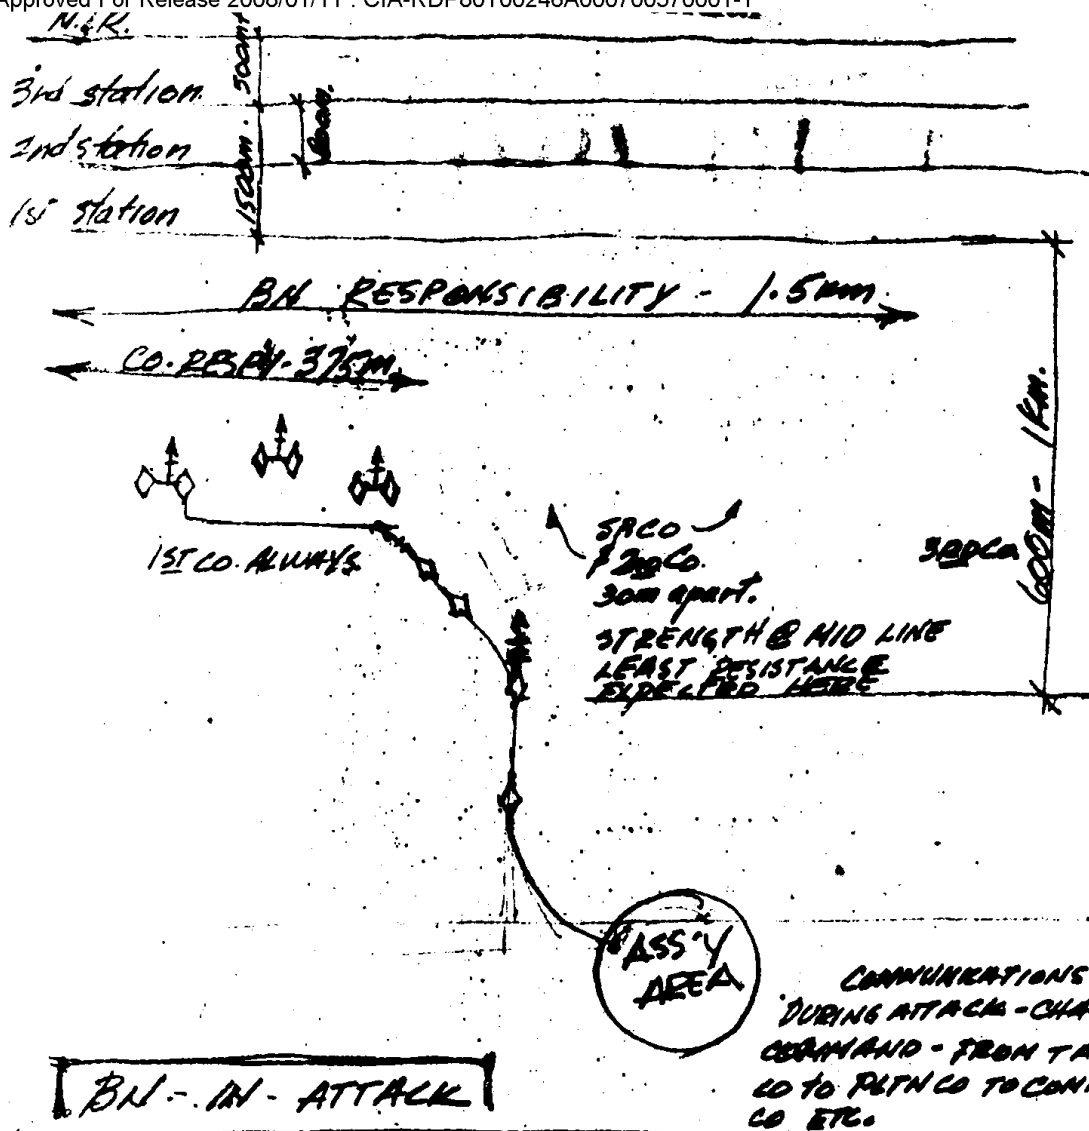 Approved For Release 2008/01/11 : CIA-RDP80T00246A000700570001-1
3rd station
500mt
2nd station
1500m.
1st station
BN RESPONSIBILITY - 1.5km.
CO. RESPY - 375m.
1ST CO. ALWAYS
& 2ND Co.
30m apart.
3RD Co.
600m - 1Km.
STRENGTH @ MID LINE
LEAST RESISTANCE
EXPECTED HERE
ASS'Y
AREA
COMMUNICATIONS
DURING ATTACK - CHA
COMMAND - FROM TA
CO TO PLTN CO TO COM
CO ETC.
BN - IN - ATTACK